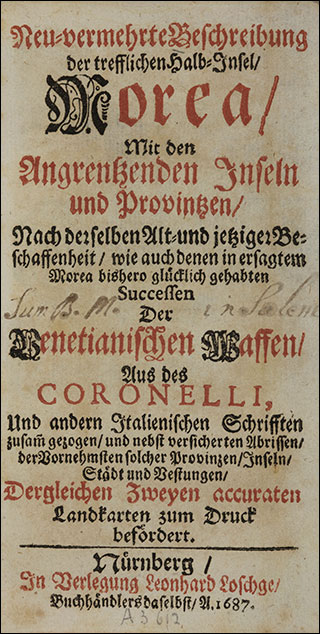 Neu-vermehrte Beschreibung
der trefflichen Halb-Insel/
Morea/
Mit den
Angrentzenden Inseln
und Provintzen/
Nach derselben Alt- und jetziger Be-
schaffenheit/ wie auch denen in ersagtem
Morea bishero glücklich gehabten
Successen
Der
Venetianischen Waffen/
Aus des
CORONELLI,
Und andern Italienischen Schrifften
zusam̃ gezogen/ und nebst versicherten Abrissen/
der Vornehmsten solcher Provinzen/ Inseln/
Städt und Vestungen/
Dergleichen Zweyen accuraten
Landkarten zum Druck
befördert.
Nürnberg/
In Verlegung Leonhard Loschge/
Buchhändlers daselbst/ A. 1687.
A 3612